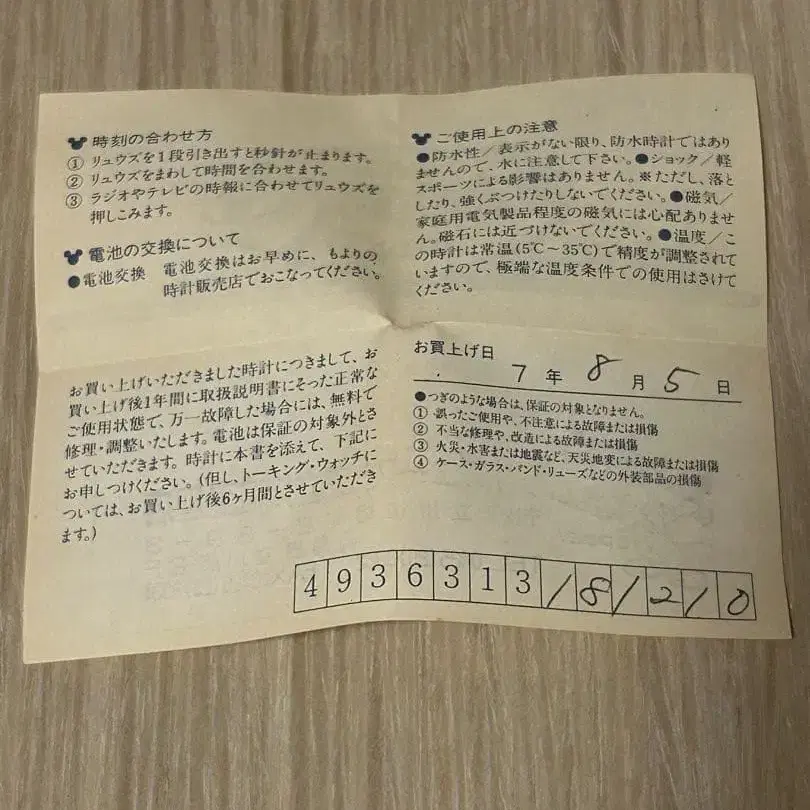 時刻の合わせ方
① リュウズを1段引き出すと秒針が止まります。
② リュウズをまわして時間を合わせます。
③ ラジオやテレビの時報に合わせてリュウズを
押しこみます。
電池の交換について
●電池交換 電池交換はお早めに、もよりの
時計販売店でおこなってください。
ご使用上の注意
●防水性/表示がない限り、防水時計ではあり
ませんので、水に注意して下さい。●ショック/軽
スポーツによる影響はありません。※ただし、落と
したり、強くぶつけたりしないでください。●磁気/
家庭用電気製品程度の磁気には心配ありませ
ん。磁石には近づけないでください。●温度/こ
の時計は常温(5℃~35℃)で精度が調整されて
いますので、極端な温度条件での使用はさけて
ください。
お買い上げいただきました時計につきまして、お
買い上げ後1年間に取扱説明書にそった正常な
ご使用状態で、万一故障した場合には、無料で
修理・調整いたします。電池は保証の対象外とさ
せていただきます。時計に本書を添えて、下記に
お申しつけください。(但し、トーキング・ウォッチに
ついては、お買い上げ後6ヶ月間とさせていただき
ます。)
お買上げ日
7年8月5日
●つぎのような場合は、保証の対象となりません。
① 誤ったご使用や、不注意による故障または損傷
② 不当な修理や、改造による故障または損傷
③ 火災・水害または地震など、天災地変による故障または損傷
④ ケース・ガラス・バンド・リューズなどの外装部品の損傷
4936313181210